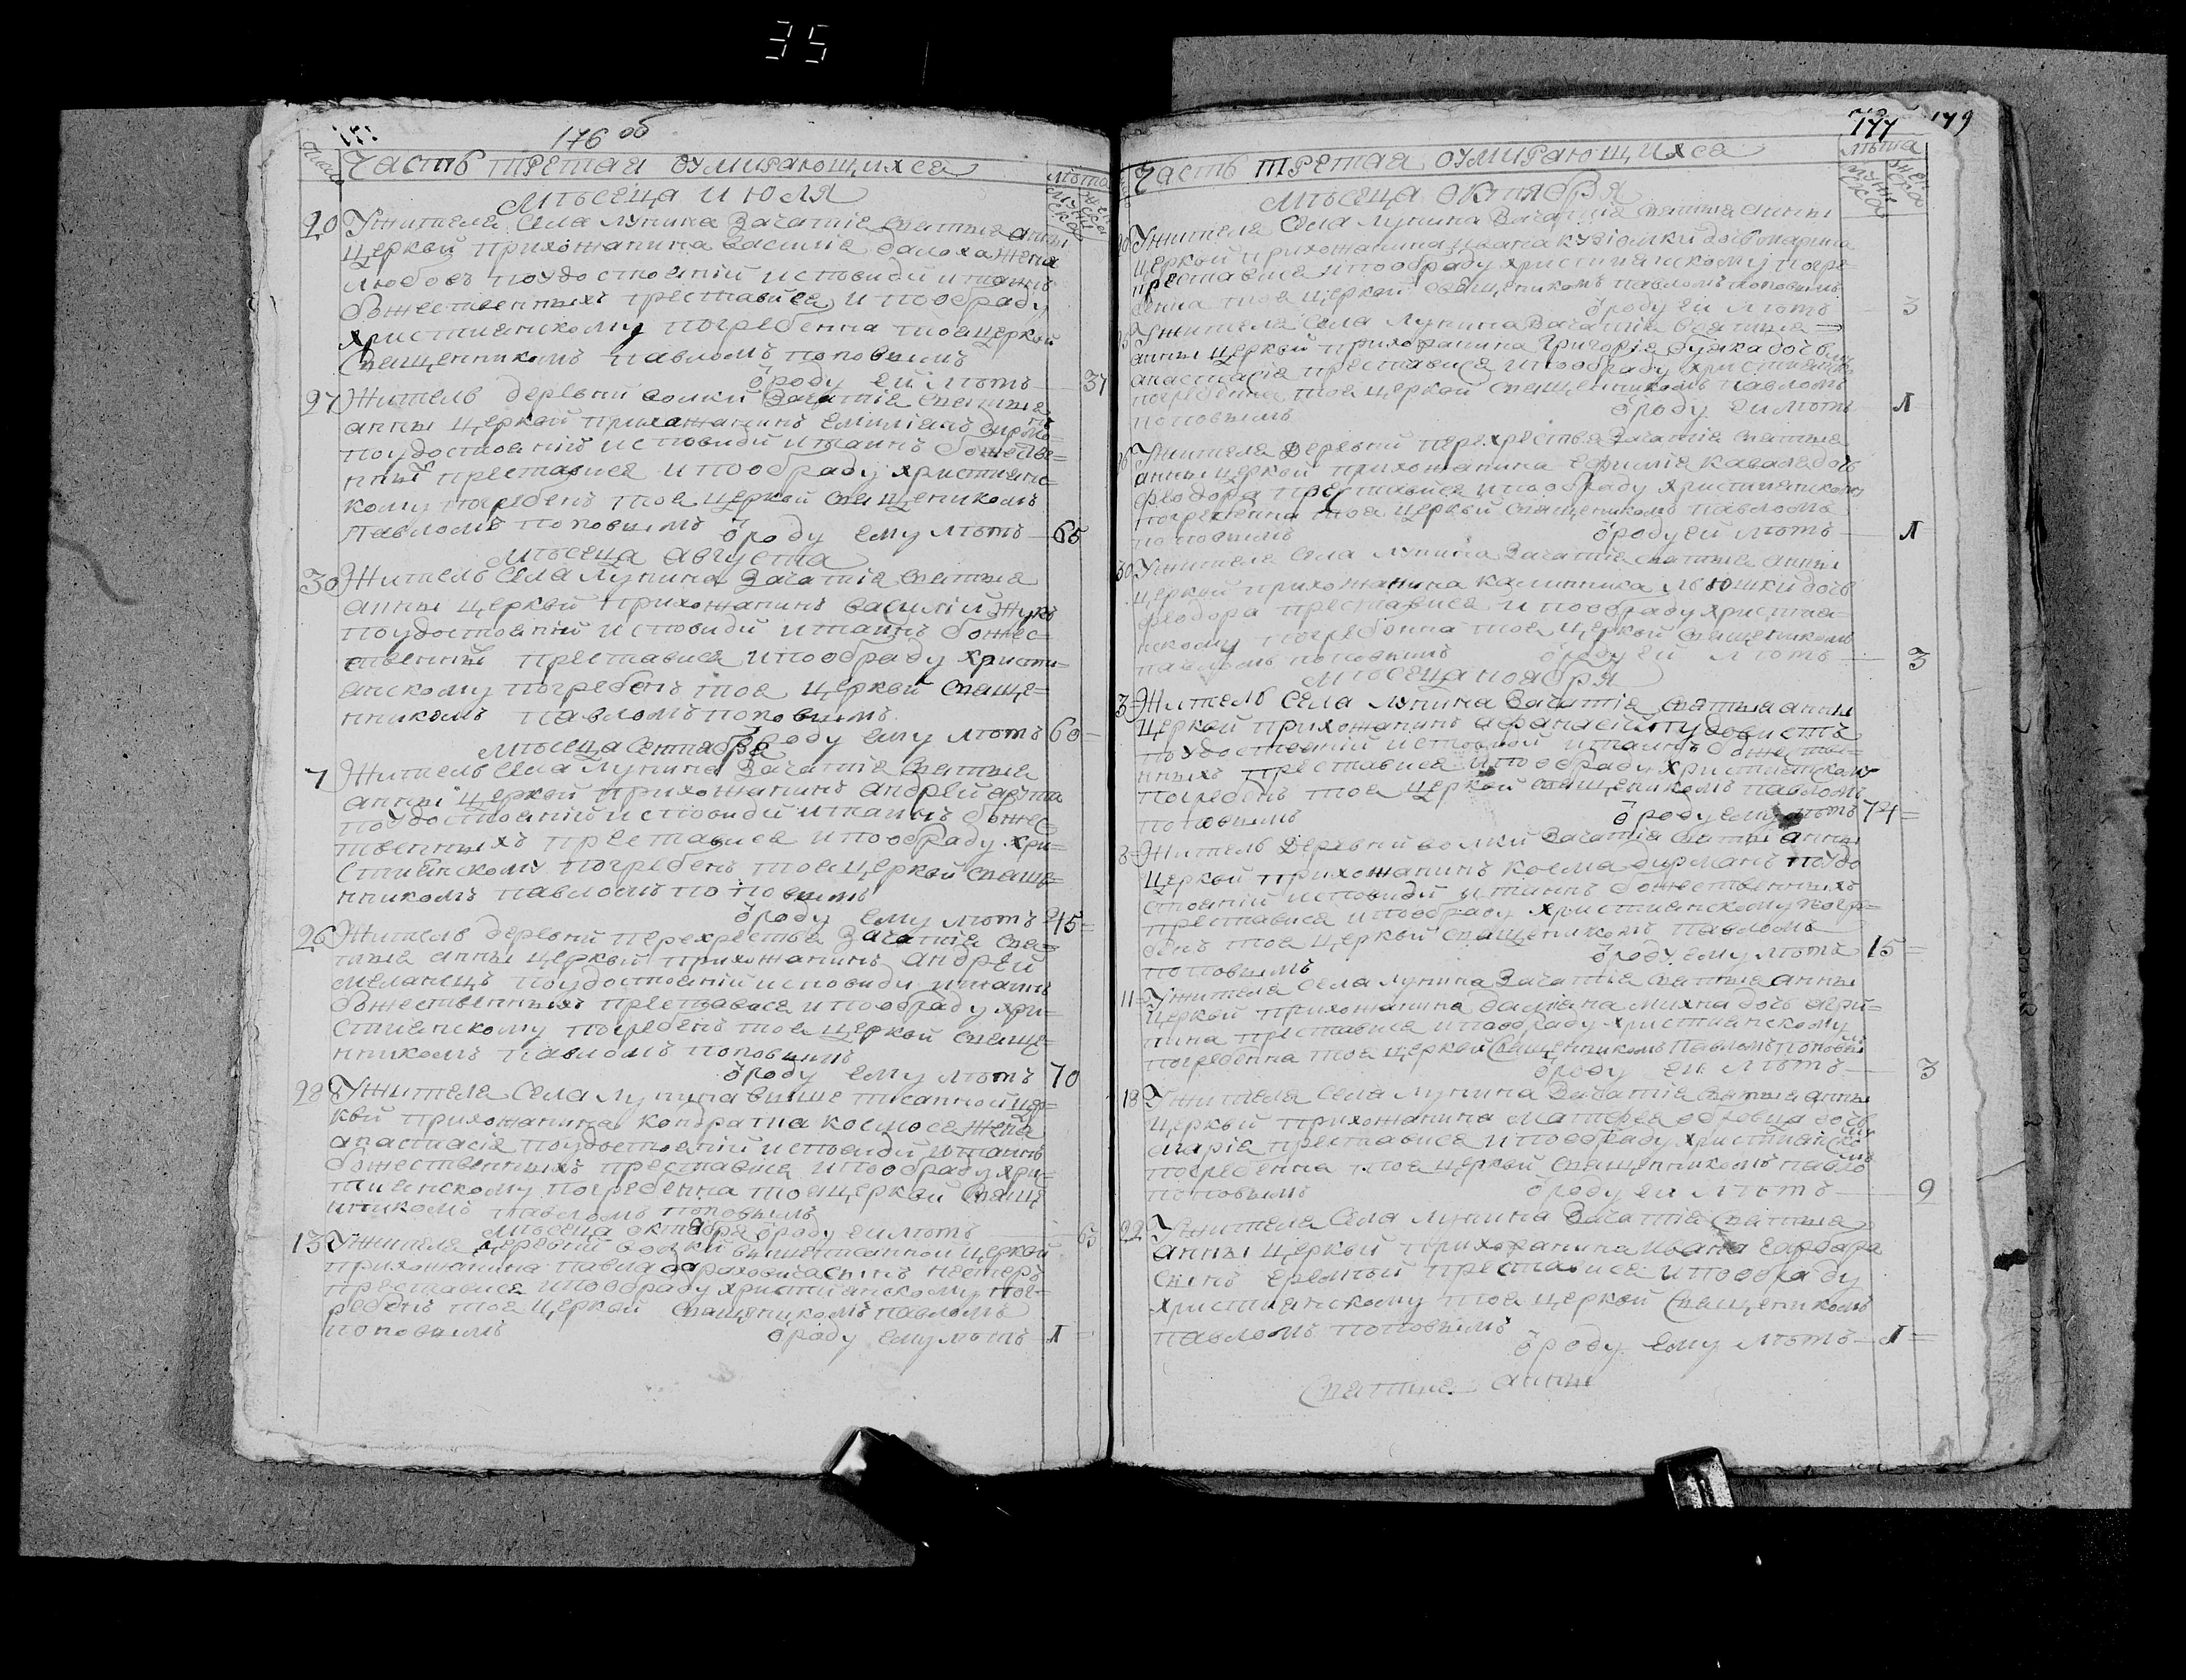 35
176 об
Часть третая оумирающихса
лѣта
Мѣсеца июля
20 У жителя села Лунина Зачатіе Светыя Анны
церквй прихожанина Василіе жена
Любовъ поудостоеній исповиди итаинъ
божественныхъ преставися и пообраду
христиенскому погребенна тоя церквй
Свещенникомъ Павломъ Поповымъ
ѿроду ей лѣтъ 37
27 Житель деревни Волки Зачатіе Светыя
Анны церквй прихожанинъ Емиліянъ
поудостоеній исповиди итаинъ божестве=
нныхъ преставися и пообраду христиенс=
кому погребенъ тоя церквй Свещеникомъ
Павломъ Поповымъ ѿроду ему лѣтъ 65
Мѣсеца августа
30 Житель села Лунина Зачатіе Светыя
Анны церквй прихожанинъ Василій Жукъ
поудостоеній исповиди итаинъ божес=
твенныхъ преставися ипообраду христи=
енскому погребенъ тоя церквй Свеще=
нникомъ Павломъ Поповымъ
ѿроду ему лѣтъ 60
Мѣсеца Сентабра
7 Житель села Лунина Зачатіе Светыя
Анны церквй прихожанинъ Андрей
поудостоеній исповиди итаинъ божес=
твенныхъ преставися ипообраду хри=
стиенскому погребенъ тоя церквй Свеще=
нникомъ Павломъ Поповымъ
ѿроду ему лѣтъ 45
26 Житель деревни Перехрестья Зачатіе Све=
тыя Анны церквй прихожанинъ Андрей
Меланецъ поудостоеній исповиди итаинъ
божественныхъ преставися ипообраду хри=
стиенскому погребенъ тоя церквй Свеще=
нникомъ Павломъ Поповымъ
ѿроду ему лѣтъ 70
28 У жителя села Лунина вышеписанной цер=
квй прихожанина Кондратиа жена
Анастасіе поудостоеній исповиди итаинъ
божественныхъ преставися ипообраду хри=
тиенскому погребенна тоя церквй Свеще
нникомъ Павломъ Поповымъ
Мѣсеца октебра ѿроду ей лѣтъ 63
13 У жителя деревни Волки вышеписанной церквй
прихожанина Павла сынъ Нестеръ
преставися ипообраду христиенскому пог=
ребенъ тоя церквй Свещеникомъ Павломъ
Поповымъ ѿроду ему лѣтъ 1
177 179
Часть третая оумирающихса
лѣта
Мѣсеца октября
У жителя села Лунина Зачатіе Светыя Анны
церквй прихожанина Ивана дочь Марина
преставися ипообраду христиенскому погре=
бенна тоя церквй Свещеникомъ Павломъ Поповымъ
ѿроду ей лѣтъ 3
У жителя села Лунина Зачатіе Светыя
Анны церквй прихожанина Григоріе дочь
Анастасіе преставися ипообраду христиенскому
погребенна тоя церквй Свещенникомъ Павломъ
Поповымъ ѿроду ей лѣтъ 1
У жителя деревни Перехрестья Зачатіе Светыя
Анны церквй прихожанина Ефимие Ковале дочь
Феодора преставися ипообраду христиенскому
погребенна тоя церквй Свещеникомъ Павломъ
Поповымъ ѿроду ей лѣтъ 1
30 У жителя села Лунина Зачатіе Светыя Анны
церквй прихожанина Калинника дочь
Феодора преставися ипообраду христие=
нскому погребенна тоя церквй Свещеникомъ
Павломъ Поповымъ ѿроду ей лѣтъ 3
Мѣсеца ноября
3 Житель села Лунина Зачатіе Светыя Анны
церквй прихожанинъ Афанасій
поудостоеній исповиди итаинъ божестве=
нныхъ преставися ипообраду христиенскому
погребенъ тоя церквй Свещеникомъ Павломъ
Поповымъ ѿроду ему лѣтъ 74
8 Житель деревни Волки Зачатіе Светыя Анны
церквй прихожанинъ Косма поудо
стоеній исповиди итаинъ божественныхъ
преставися ипообраду христиенскому погре=
бенъ тоя церквй Свещеникомъ Павломъ
Поповымъ ѿроду ему лѣтъ 15
11 У жителя села Лунина Зачатіе Светыя Анны
церквй прихожанина Михна дочь Агри=
пина преставися ипообраду христиенскому
погребенна тоя церквй Свещенникомъ Павломъ Поповымъ
ѿроду ей лѣтъ 3
18 У жителя села Лунина Зачатіе Светыя Анны
церквй прихожанина Матфея дочь
Маріе преставися ипообраду христиенскому
погребенна тоя церквй Свещенникомъ Павломъ
Поповымъ ѿроду ей лѣтъ 9
22 У жителя села Лунина Зачатіе Светыя
Анны церквй прихожанина Ивана
сынъ Еремѣй преставися ипообраду
христиенскому тоя церквй Свещеникомъ
Павломъ Поповымъ
ѿроду ему лѣтъ 1
Светыя Анны